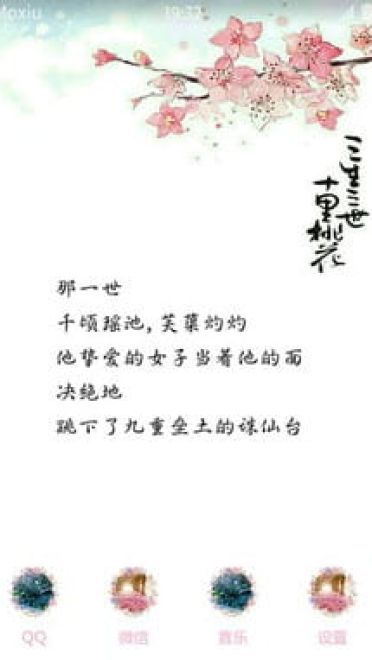 Moxiu
19:32
三生三世
十里桃花
那一世
千顷瑶池,芙蕖灼灼
他挚爱的女子当着他的面
决绝地
跳下了九重垒土的诛仙台
QQ
微信
音乐
设置